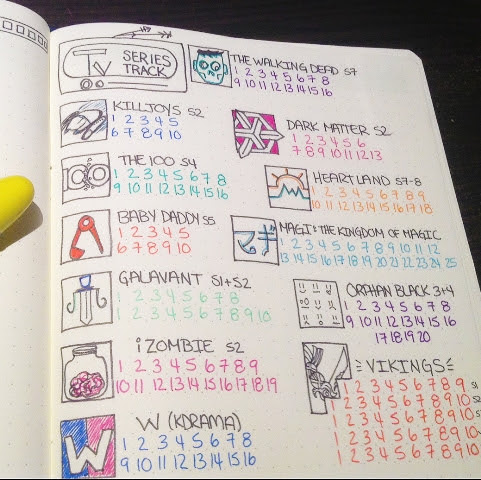 TV SERIES TRACK
THE WALKING DEAD S7
1 2 3 4 5 6 7 8
9 10 11 12 13 14 15 16
KILLJOYS S2
1 2 3 4 5
6 7 8 9 10
DARK MATTER S2
1 2 3 4 5 6
7 8 9 10 11 12 13
100
THE 100 S4
1 2 3 4 5 6 7 8
9 10 11 12 13 14 15 16
HEARTLAND S7-8
1 2 3 4 5 6 7 8 9
10 11 12 13 14 15 16 17 18
BABY DADDY S5
1 2 3 4 5
6 7 8 9 10
マギ
MAGI: THE KINGDOM OF MAGIC
1 2 3 4 5 6 7 8 9 10 11 12
13 14 15 16 17 18 19 20 21 22 23 24 25
GALAVANT S1+S2
1 2 3 4 5 6 7 8
1 2 3 4 5 6 7 8 9 10
ORPHAN BLACK 3+4
1 2 3 4 5 6 7 8
9 10 11 12 13 14 15 16
17 18 19 20
iZOMBIE S2
1 2 3 4 5 6 7 8 9
10 11 12 13 14 15 16 17 18 19
VIKINGS
1 2 3 4 5 6 7 8 9 S1
1 2 3 4 5 6 7 8 9 10 S2
1 2 3 4 5 6 7 8 9 10
1 2 3 4 5 6 7 8 9 10
1 2 3 4 5 6 7 8 9 10
W
W (KDRAMA)
1 2 3 4 5 6 7 8
9 10 11 12 13 14 15 16